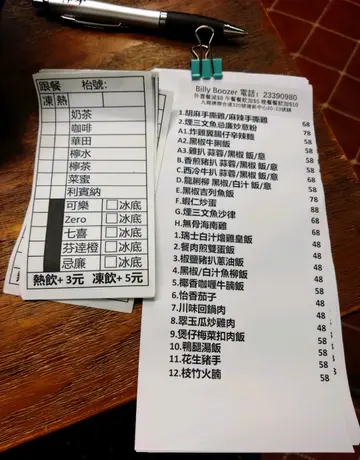 跟餐 枱號:
凍 熱
奶茶
咖啡
華田
檸水
檸茶
菜蜜
利賓納
可樂 冰底
Zero 冰底
七喜 冰底
芬達橙 冰底
忌廉 冰底
熱飲+3元 凍飲+5元
Billy Boozer 電話: 23390980
1.胡麻手撕雞/麻辣手撕雞 68
2.煙三文魚忌廉炒意粉 78
A1.炸雞翼腸仔辛辣麵 58
A2.黑椒牛脷飯 58
A3.雞扒 蒜蓉/黑椒 飯/意 58
B.香煎豬扒 蒜蓉/黑椒 飯/意 58
C.西冷牛扒 蒜蓉/黑椒 飯/意 58
D.龍脷柳 黑椒/白汁 飯/意 58
E.黑椒吉列魚飯 58
F.蝦仁炒蛋
G.煙三文魚沙律
H.無骨海南雞
1.瑞士白汁燴雞皇飯 48
2.餐肉煎雙蛋飯 48
3.椒鹽豬扒蔥油飯 48
4.黑椒/白汁魚柳飯 48
5.椰香咖喱牛腩飯 58
6.怡香茄子 48
7.川味回鍋肉 48
8.翠玉瓜炒雞肉 48
9.煲仔梅菜扣肉飯 58
10.鴨腿湯飯 58
11.花生豬手 58
12.枝竹火腩 58